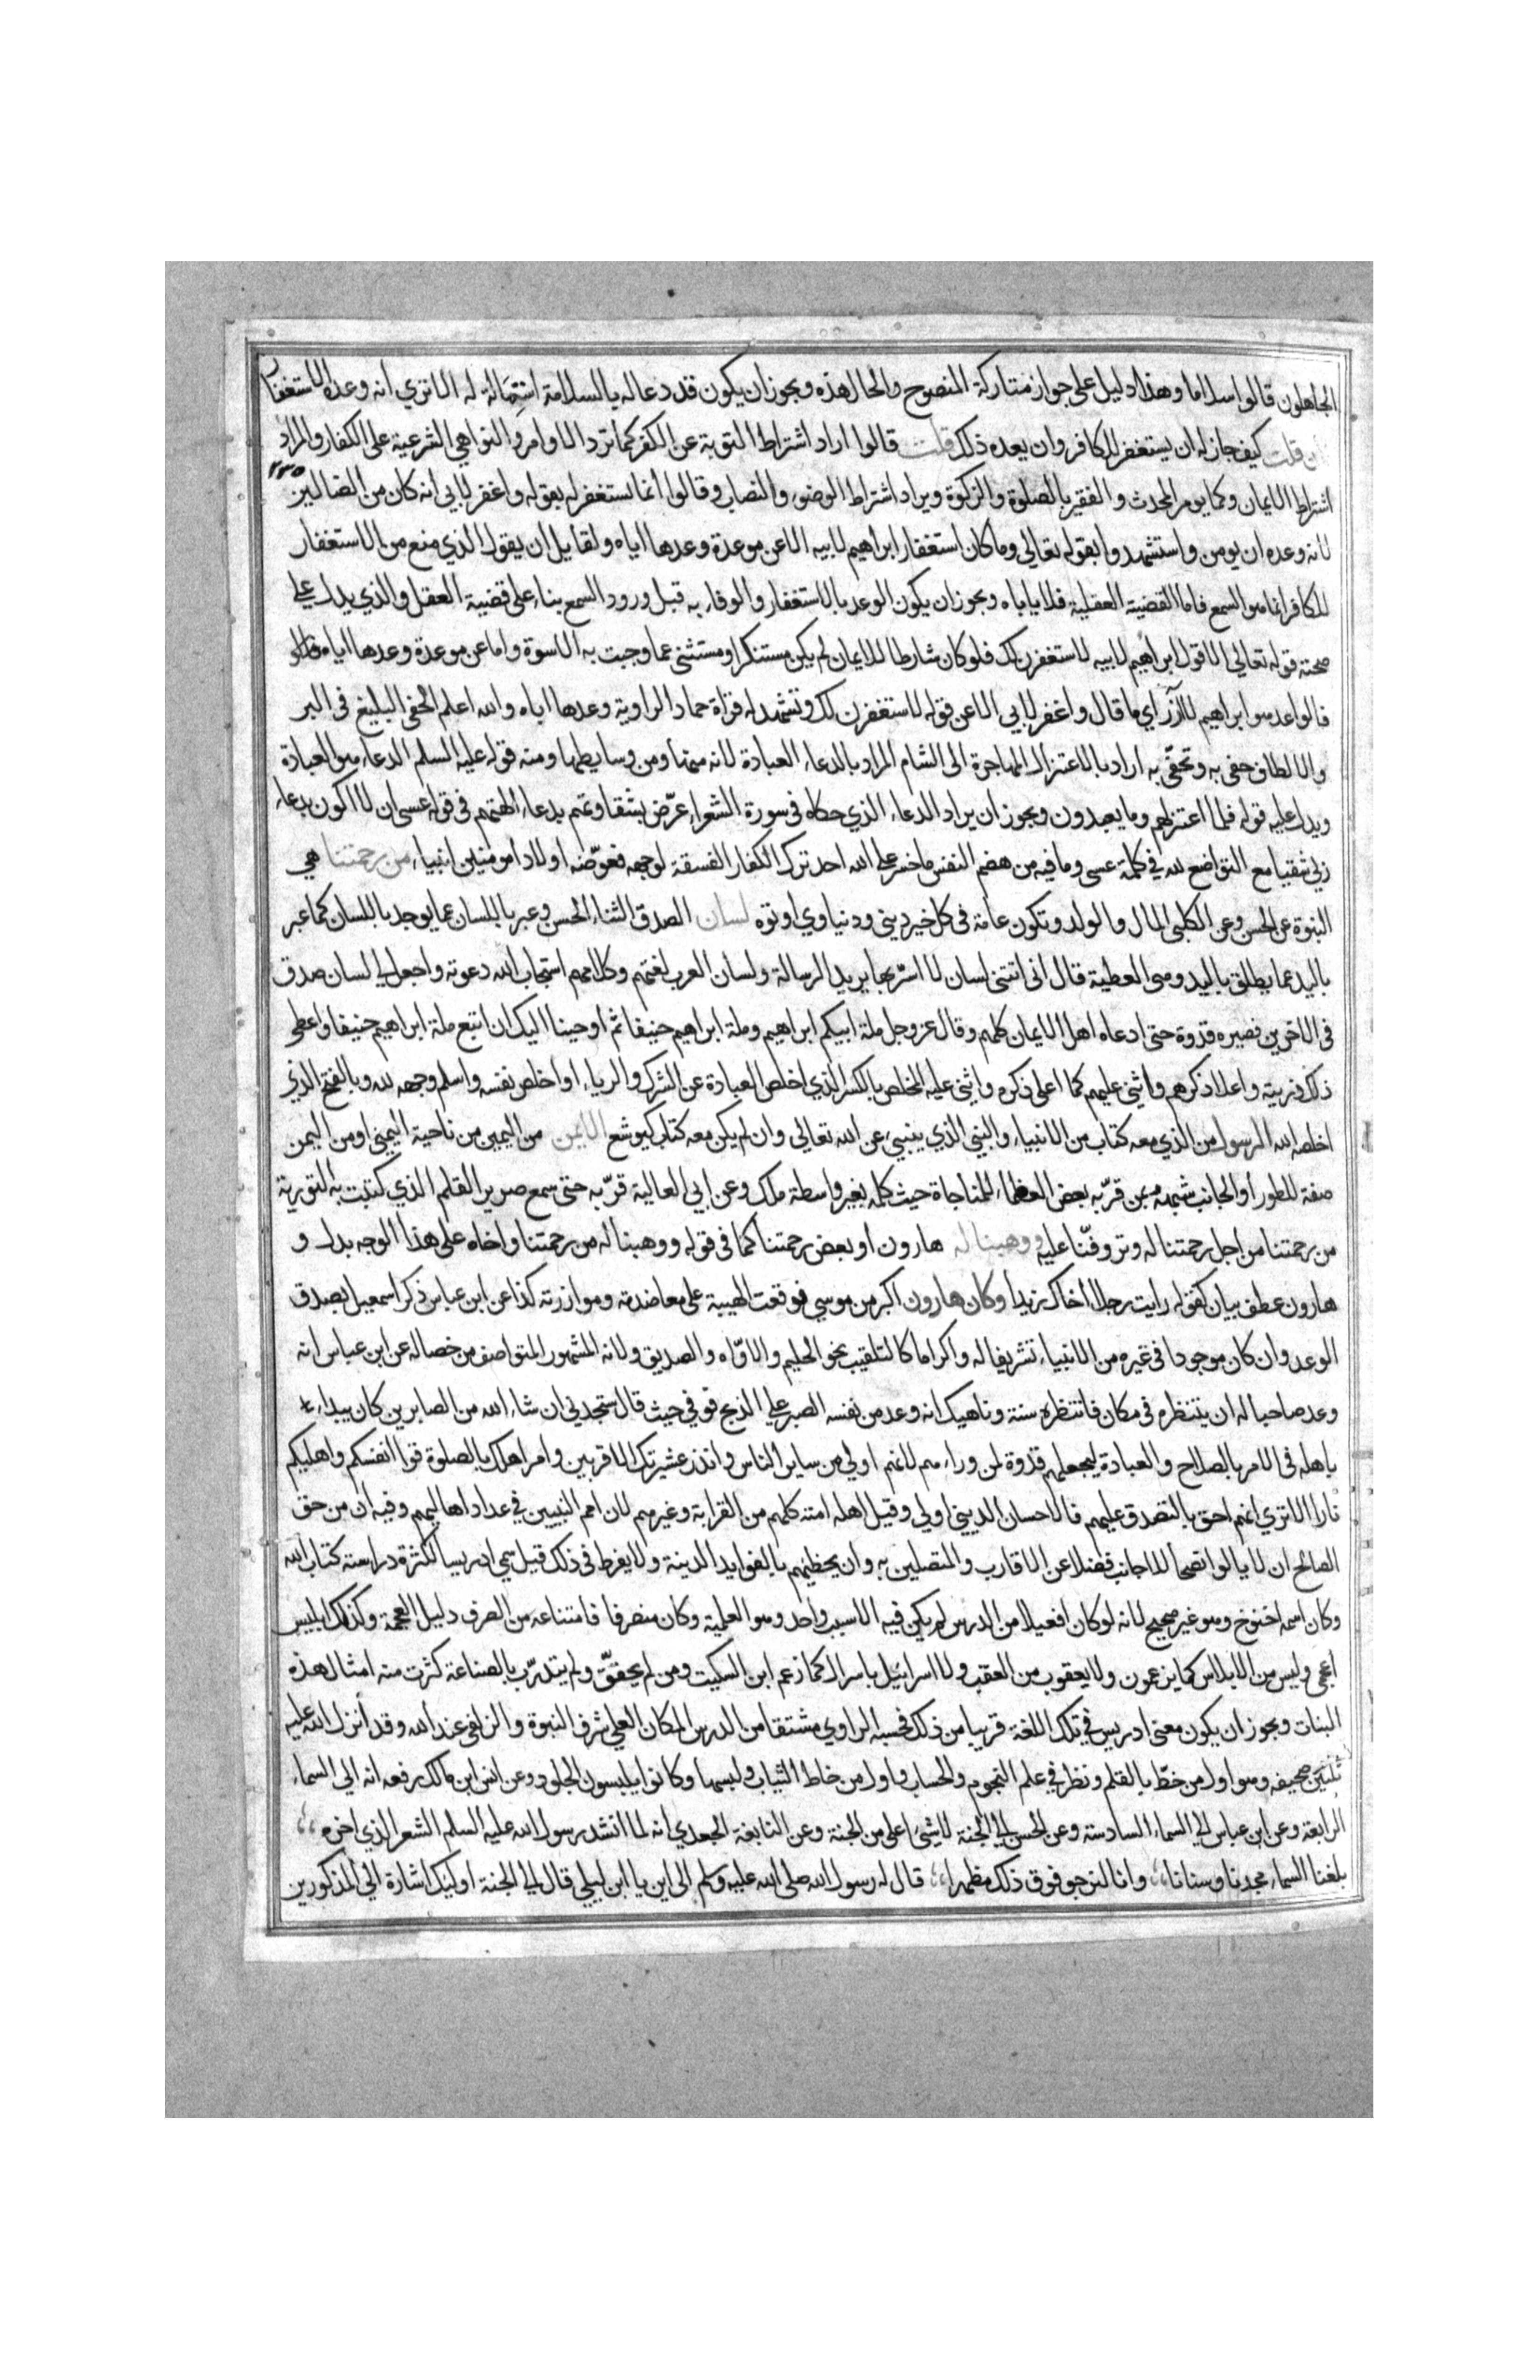 الجاهلون قالوا سلاما وهذا دليل على جواز متاركة المنصوح والحال هذه ويجوز ان يكون قد دعا له بالسلامة استمالة له الا ترى انه وعده الاستغفار
فان قلت كيف جاز له ان يستغفر للكافر وان يعده ذلك قلت قالوا اراد اشتراط التوبة عن الكفر كما ترد الاوامر والنواهي الشرعية على الكفار والمراد
٢٢٥
اشتراط الايمان وكما يومر المحدث والفقير بالصلوة والزكوة ويراد اشتراط الوضوء والنصاب وقالوا انما استغفر له بقوله واغفر لابي انه كان من الضالين
لانه وعده ان يومن واستشهدوا بقوله تعالى وما كان استغفار ابراهيم لابيه الا عن موعدة وعدها اياه ولقايل ان يقول الذي منع من الاستغفار
للكافر انما هو السمع فاما القضية العقلية فلا ياباه ويجوز ان يكون الوعد بالاستغفار والوفاء به قبل ورود السمع بناء على قضية العقل والذي يدل على
صحته قوله تعالى الا قول ابراهيم لابيه لاستغفرن لك فلو كان شارطا للايمان لم يكن مستنكرا ومستثنى عما وجبت به الاسوة واما عن موعدة وعدها اياه
فالواعد هو ابراهيم لا آزر اي ما قال واغفر لابي الا عن قوله لاستغفرن لك وتشهد له قراة حماد الراوية وعدها اباه والله اعلم الحفي البليغ في البر
والالطاف حفي به وتحفّى به اراد بالاعتزال المهاجرة الى الشام المراد بالدعاء العبادة لانه منها ومن وسايطها ومنه قوله عليه السلم الدعاء هو العبادة
ويدل عليه قوله فلما اعتزلهم وما يعبدون ويجوز ان يراد الدعاء الذي حكاه في سورة الشعراء عرّض بشقاوتهم بدعاء الهتهم في قوله عسى ان لا اكون بدعاء
ربي شقيا مع التواضع لله في كلمة عسى وما فيه من هضم النفس ما خسر على الله احد ترك الكفار الفسقة لوجهه فعوّضه اولادا مومنين انبياء من رحمتنا هي
النبوة عن الحسن وعن الكلبي المال والولد وتكون عامة في كل خير ديني ودنياوي اوتوه لسان الصدق الثناء الحسن وعبر باللسان عما يوجد باللسان كما عبر
باليد عما يطلق باليد وهي العطية قال اني اتتني لسان لا اسرّ بها يريد الرسالة ولسان العرب لغتهم وكلامهم استجاب الله دعوته واجعل لي لسان صدق
في الاخرين فصيره قدوة حتى ادعاه اهل الايمان كلهم وقال عز وجل ملة ابيكم ابراهيم وملة ابراهيم حنيفا ثم اوحينا اليك ان اتبع ملة ابراهيم حنيفا واعطى
ذلك ذريته واعلا ذكرهم واثني عليهم كما اعلى ذكره واثني عليه المخلص بالكسر الذي اخلص العبادة عن الشرك والرياء او اخلص نفسه واسلم وجهه لله وبالفتح الذي
اخلصه الله الرسول من الذي معه كتاب من الانبياء والنبي الذي ينبيء عن الله تعالى وان لم يكن معه كتاب كيوشع الايمن من اليمين من ناحية اليمنى او من اليمن
صفة للطور او الجانب شبهه بمن قرّبه بعض العظماء للمناجاة حيث كلمه بغير واسطة ملك وعن ابي العالية قرّبه حتى سمع صرير القلم الذي كتبت به التورية
من رحمتنا من اجل رحمتنا له وتروفنا عليه ووهبنا له هارون او بعض رحمتنا كما في قوله ووهبنا له من رحمتنا واخاه على هذا الوجه بدل و
هارون عطف بيان كقوله رايت رجلا اخاك زيدا وكان هارون اكبر من موسي فوقعت الهبة على معاضدته وموازرته كذا عن ابن عباس ذكر اسمعيل بصدق
الوعد وان كان موجودا في غيره من الانبياء تشريفا له واكراما كالتلقيب بنحو الحليم والاوّاه والصديق ولانه المشهور المتواصف من خصاله عن ابن عباس انه
وعد صاحبا له ان ينتظره في مكان فانتظره سنة وناهيك انه وعد من نفسه الصبر على الذبح فوفي حيث قال ستجدني ان شاء الله من الصابرين كان يبداء
باهله في الامر بالصلاح والعبادة ليجعلهم قدوة لمن وراءهم لانهم اولي من ساير الناس وانذر عشيرتك الاقربين وامر اهلك بالصلوة قوا انفسكم واهليكم
نارا الا تري انهم احق بالتصدق عليهم فالاحسان الديني اولي وقيل اهله امته كلهم من القرابة وغيرهم لان امم النبيين في عداد اهاليهم وفيه ان من حق
الصالح ان لا يالوا نصحا للاجانب فضلا عن الاقارب والمتصلين به وان يحظيهم بالفوايد الدينية ولا يفرط في ذلك قيل سمي ادريسا لكثرة دراسته كتاب الله
وكان اسمه اخنوخ وهو غير صحيح لانه لو كان افعيلا من الدرس لم يكن فيه الا سبب واحد وهو العلمية وكان منصرفا فامتناعه من الصرف دليل العجمة وكذلك ابليس
اعجمي وليس من الابلاس كما يزعمون ولا يعقوب من العقب ولا اسرائيل باسرال كما زعم ابن السكيت ومن لم يحقق ولم يتدرّب بالصناعة كثرت منه امثال هذه
الهنات ويجوز ان يكون معنى ادريس في تلك اللغة قريبا من ذلك فحسبه الراوي مشتقا من الدرس المكان العلي شرف النبوة والزلفى عند الله وقد أنزل الله عليه
ثلثين صحيفة وهو اول من خطّ بالقلم ونظر في علم النجوم والحساب واول من خاط الثياب ولبسها وكانوا يلبسون الجلود وعن انس ابن مالك رفعه انه الى السماء
الرابعة وعن ابن عباس الي السماء السادسة وعن الحسن الي الجنة لا شيئ اعلى من الجنة وعن النابغة الجعدي انه لما انشد رسول الله عليه السلم الشعر الذي اخره
بلغنا السماء مجدنا وسنانا وانا لنرجو فوق ذلك مظهرا قال له رسول الله صلى الله عليه وسلم الى اين يا ابن ليلي قال الي الجنة اوليك اشارة الي المذكورين